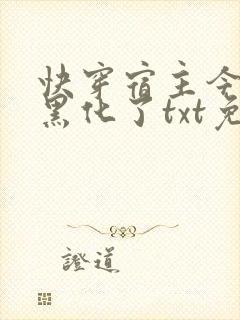 快穿宿主今
黑化了txt免
證道